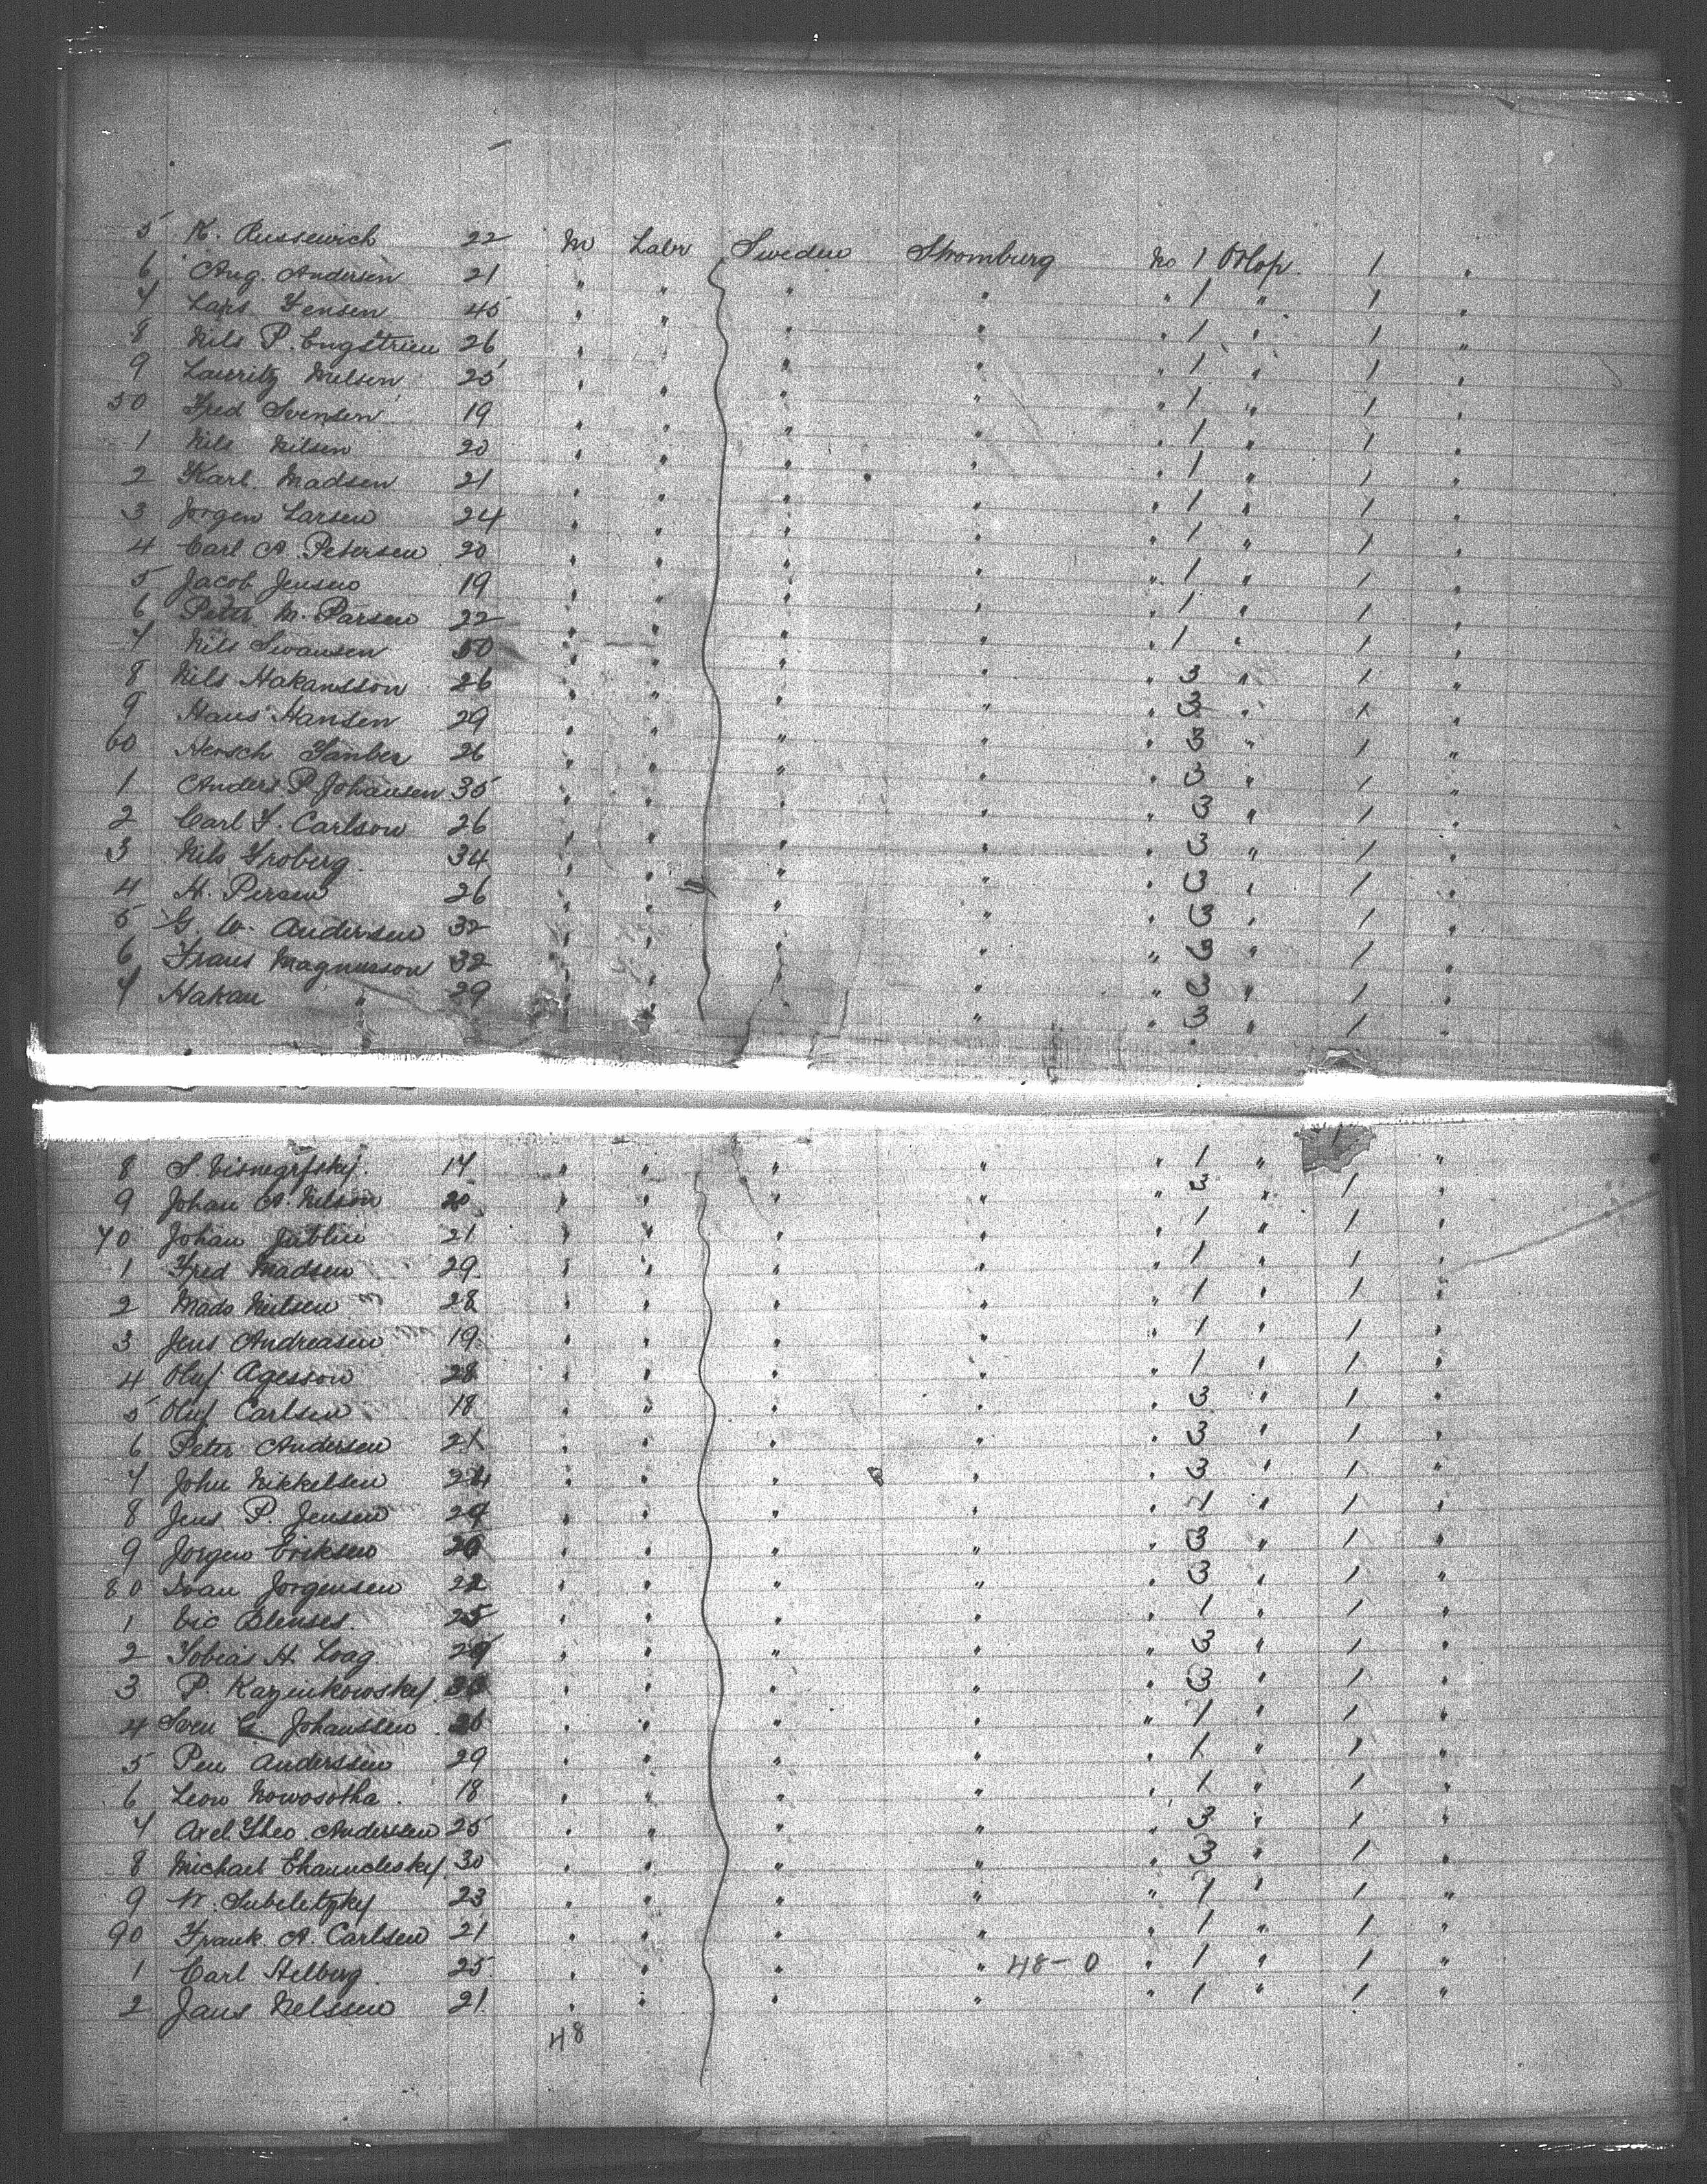 5 K. Russewich 22 M Labr Sweden Stromburg No 1 Orlop. 1 "
6 Aug. Andersen 21 " " " " " 1 " 1 "
7 Lars Jensen 45 " " " " " 1 " 1 "
8 Nils P. Engstren 26 " " " " " 1 " 1 "
9 Lauritz Nielsen 25 " " " " " 1 " 1 "
50 Fred Svensen 19 " " " " " 1 " 1 "
1 Nils Nilsen 20 " " " " " 1 " 1 "
2 Karl Madsen 21 " " " " " 1 " 1 "
3 Jorgen Larsen 24 " " " " " 1 " 1 "
4 Carl A. Petersen 20 " " " " " 1 " 1 "
5 Jacob Jensen 19 " " " " " 1 " 1 "
6 Peter M. Parsen 22 " " " " " 1 " 1 "
7 Nils Swansen 50 " " " " " 3 " 1 "
8 Nils Hakansson 26 " " " " " 3 " 1 "
9 Hans Hansen 29 " " " " " 3 " 1 "
60 Hersch Tamber 26 " " " " " 3 " 1 "
1 Anders P Johansen 35 " " " " " 3 " 1 "
2 Carl F. Carlson 26 " " " " " 3 " 1 "
3 Nils Froberg 34 " " " " " 3 " 1 "
4 H. Persen 26 " " " " " 3 " 1 "
5 G. W. Andersen 32 " " " " " 3 " 1 "
6 Frans Magnusson 32 " " " " " 3 " 1 "
7 Hakan " 29 " " " " " 3 " 1 "
8 S. 17 " " " " " 1 " 1 "
9 Johan A. Nelson 20 " " " " " 3 " 1 "
70 Johan Jublin 21 " " " " " 1 " 1 "
1 Fred Madsen 29 " " " " " 1 " 1 "
2 Mads Neilsen 28 " " " " " 1 " 1 "
3 Jens Andreasen 19 " " " " " 1 " 1 "
4 Oluf Agesson 28 " " " " " 1 " 1 "
5 Oluf Carlsen 18 " " " " " 3 " 1 "
6 Peter Andersen 21 " " " " " 3 " 1 "
7 John Nikkelsen 24 " " " " " 3 " 1 "
8 Jens P. Jensen 29 " " " " " 1 " 1 "
9 Jorgen Eriksen " " " " " 3 " 1 "
80 Ivan Jorgensen 22 " " " " " 3 " 1 "
1 Eric Blenses. 25 " " " " " 1 " 1 "
2 Tobias H. Loag 29 " " " " " 3 " 1 "
3 P. Kazenkowsky " " " " " 3 " 1 "
4 Sven G Johanssen 26 " " " " " 1 " 1 "
5 Peu Anderssen 29 " " " " " 1 " 1 "
6 Leon Nowosotha 18 " " " " " 1 " 1 "
7 Axel Theo. Andersen 25 " " " " " 3 " 1 "
8 Michael 30 " " " " " 3 " 1 "
9 N. Subeletzky 23 " " " " " 1 " 1 "
90 Frank A. Carlsen 21 " " " " " 1 " 1 "
1 Carl Helberg 25 " " " " 48-0 " 1 " 1 "
2 Jans Nelssen 21 " " " " " 1 " 1 "
48